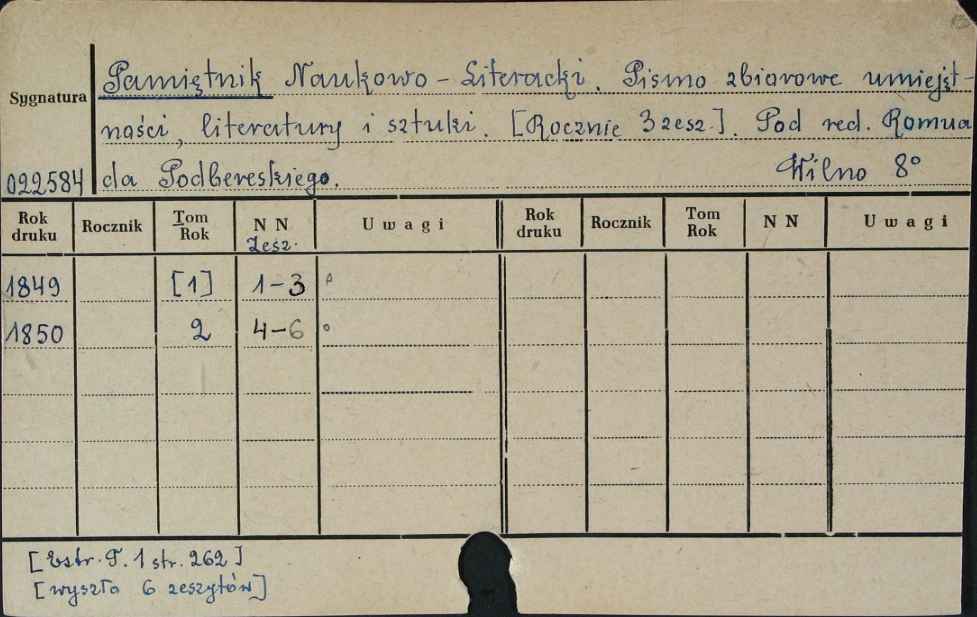 Pamiętnik Naukowo-Literacki. Pismo zbiorowe umiejęt-
Sygnatura
ności, literatury i sztuki. [Rocznie 3 zesz.]. Pod red. Romua
022584 da Podbereskiego. Wilno 8°
Rok druku Rocznik Tom Rok N N Zesz. Uwagi Rok druku Rocznik Tom Rok N N Uwagi
1849 [1] 1-3
1850 2 4-6
[Estr. T. 1 str. 262]
[wyszło 6 zeszytów]